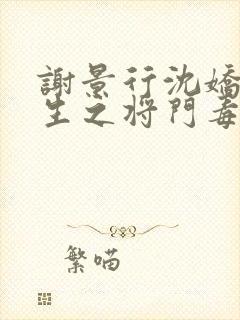 謝景行沈嬌
生之将門毒
繁喵